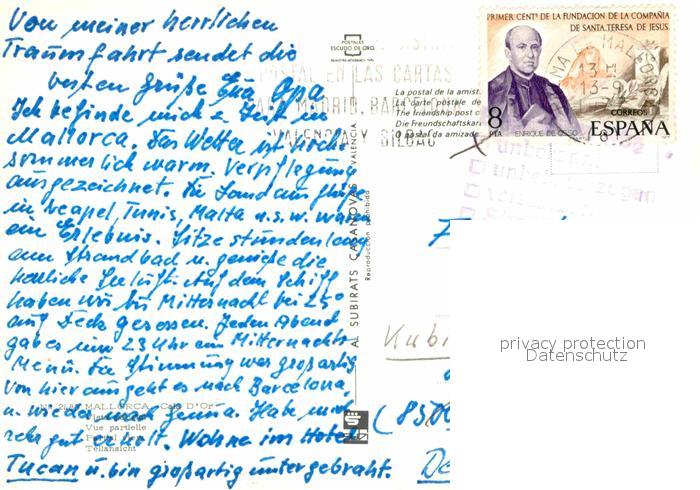 Von meiner herrlichen
Traumfahrt sendet die
besten Grüße Eua Opa
Ich befinde mich z. Zeit in
Mallorca. Das Wetter ist
sommerlich warm. Verpflegung
ausgezeichnet. Die Landausflüge
in Neapel, Tunis, Malta u.s.w. waren
ein Erlebnis. Sitze stundenlang
am Strandbad u. genieße die
herrliche Seeluft. Auf dem Schiff
haben wir bis Mitternacht bei 25°
auf Deck gesessen. Jeden Abend
gab es um 23 Uhr ein Mitternachts-
Menü. Die Stimmung war großartig
Von hier aus geht es nach Barcelona,
u. wieder nach Genua. Habe mich
sehr gut erholt. Wohne im Hotel
Tucan u. bin großartig untergebracht.
MALLORCA. Cala D'Or
Vue partielle
Teilansicht
POSTALES
ESCUDO DE ORO
POSTAL EN LAS CARTAS
MADRID, BARCELONA
VALENCIA Y BILBAO
La postal de la amist
La carte postale de
The friendship post c
Die Freundschaftskar
O postal da amizade
AL SUBIRATS CASANOVAS VALENCIA
Reproducción prohibida
PRIMER CENTº DE LA FUNDACION DE LA COMPAÑIA
DE SANTA TERESA DE JESUS.
8 PTA
ENRIQUE DE OSSO
CORREOS
ESPAÑA
unbekannt
Kubi
(850
privacy protection
Datenschutz